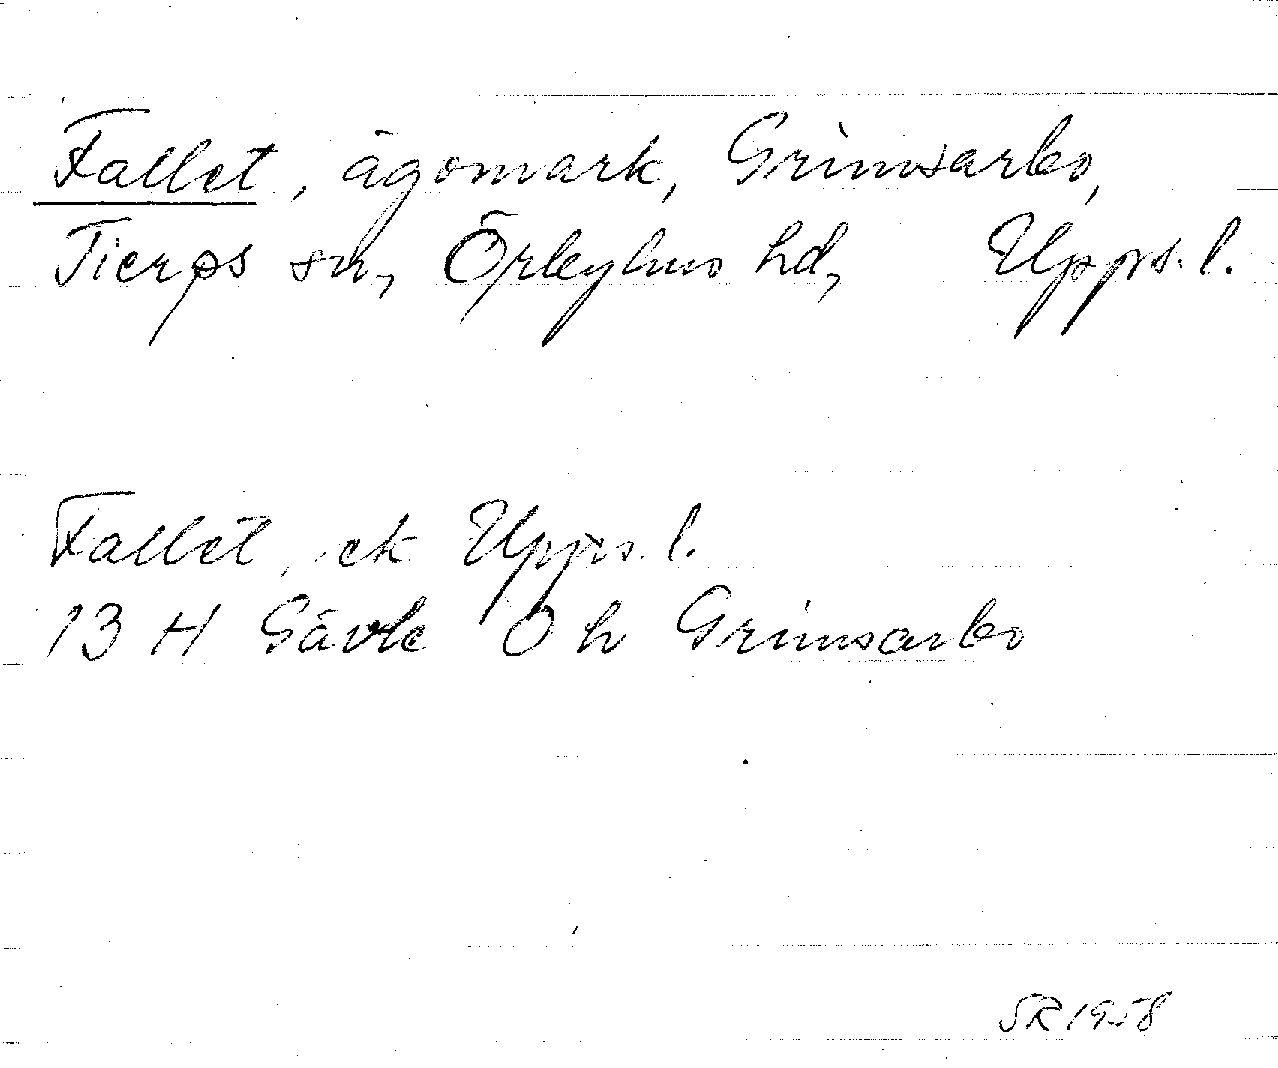 Fallet, ägomark, Grimsarbo,
Tierps sn, Örbyhus hd, Upps. l.
Fallet, ek Upps. l.
13 H Gävle Ö h Grimsarbo
SR 1958